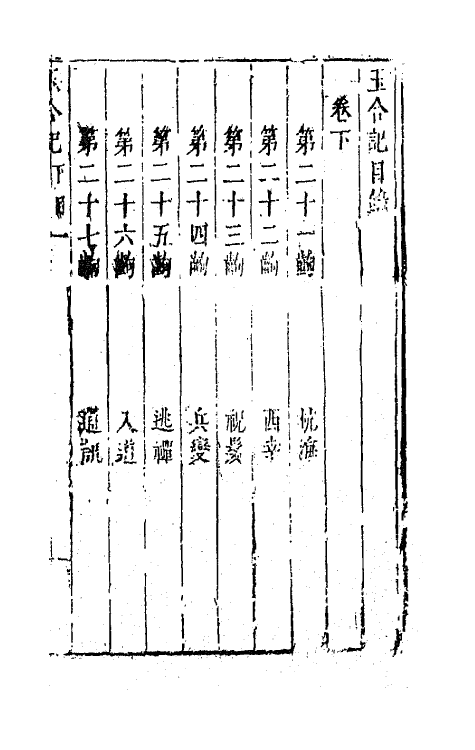 玉合記目錄
卷下
第二十一齣 杭海
第二十二齣 西幸
第二十三齣 祝髮
第二十四齣 兵變
第二十五齣 逃禪
第二十六齣 入道
第二十七齣 通訊
玉合記 下 目 一